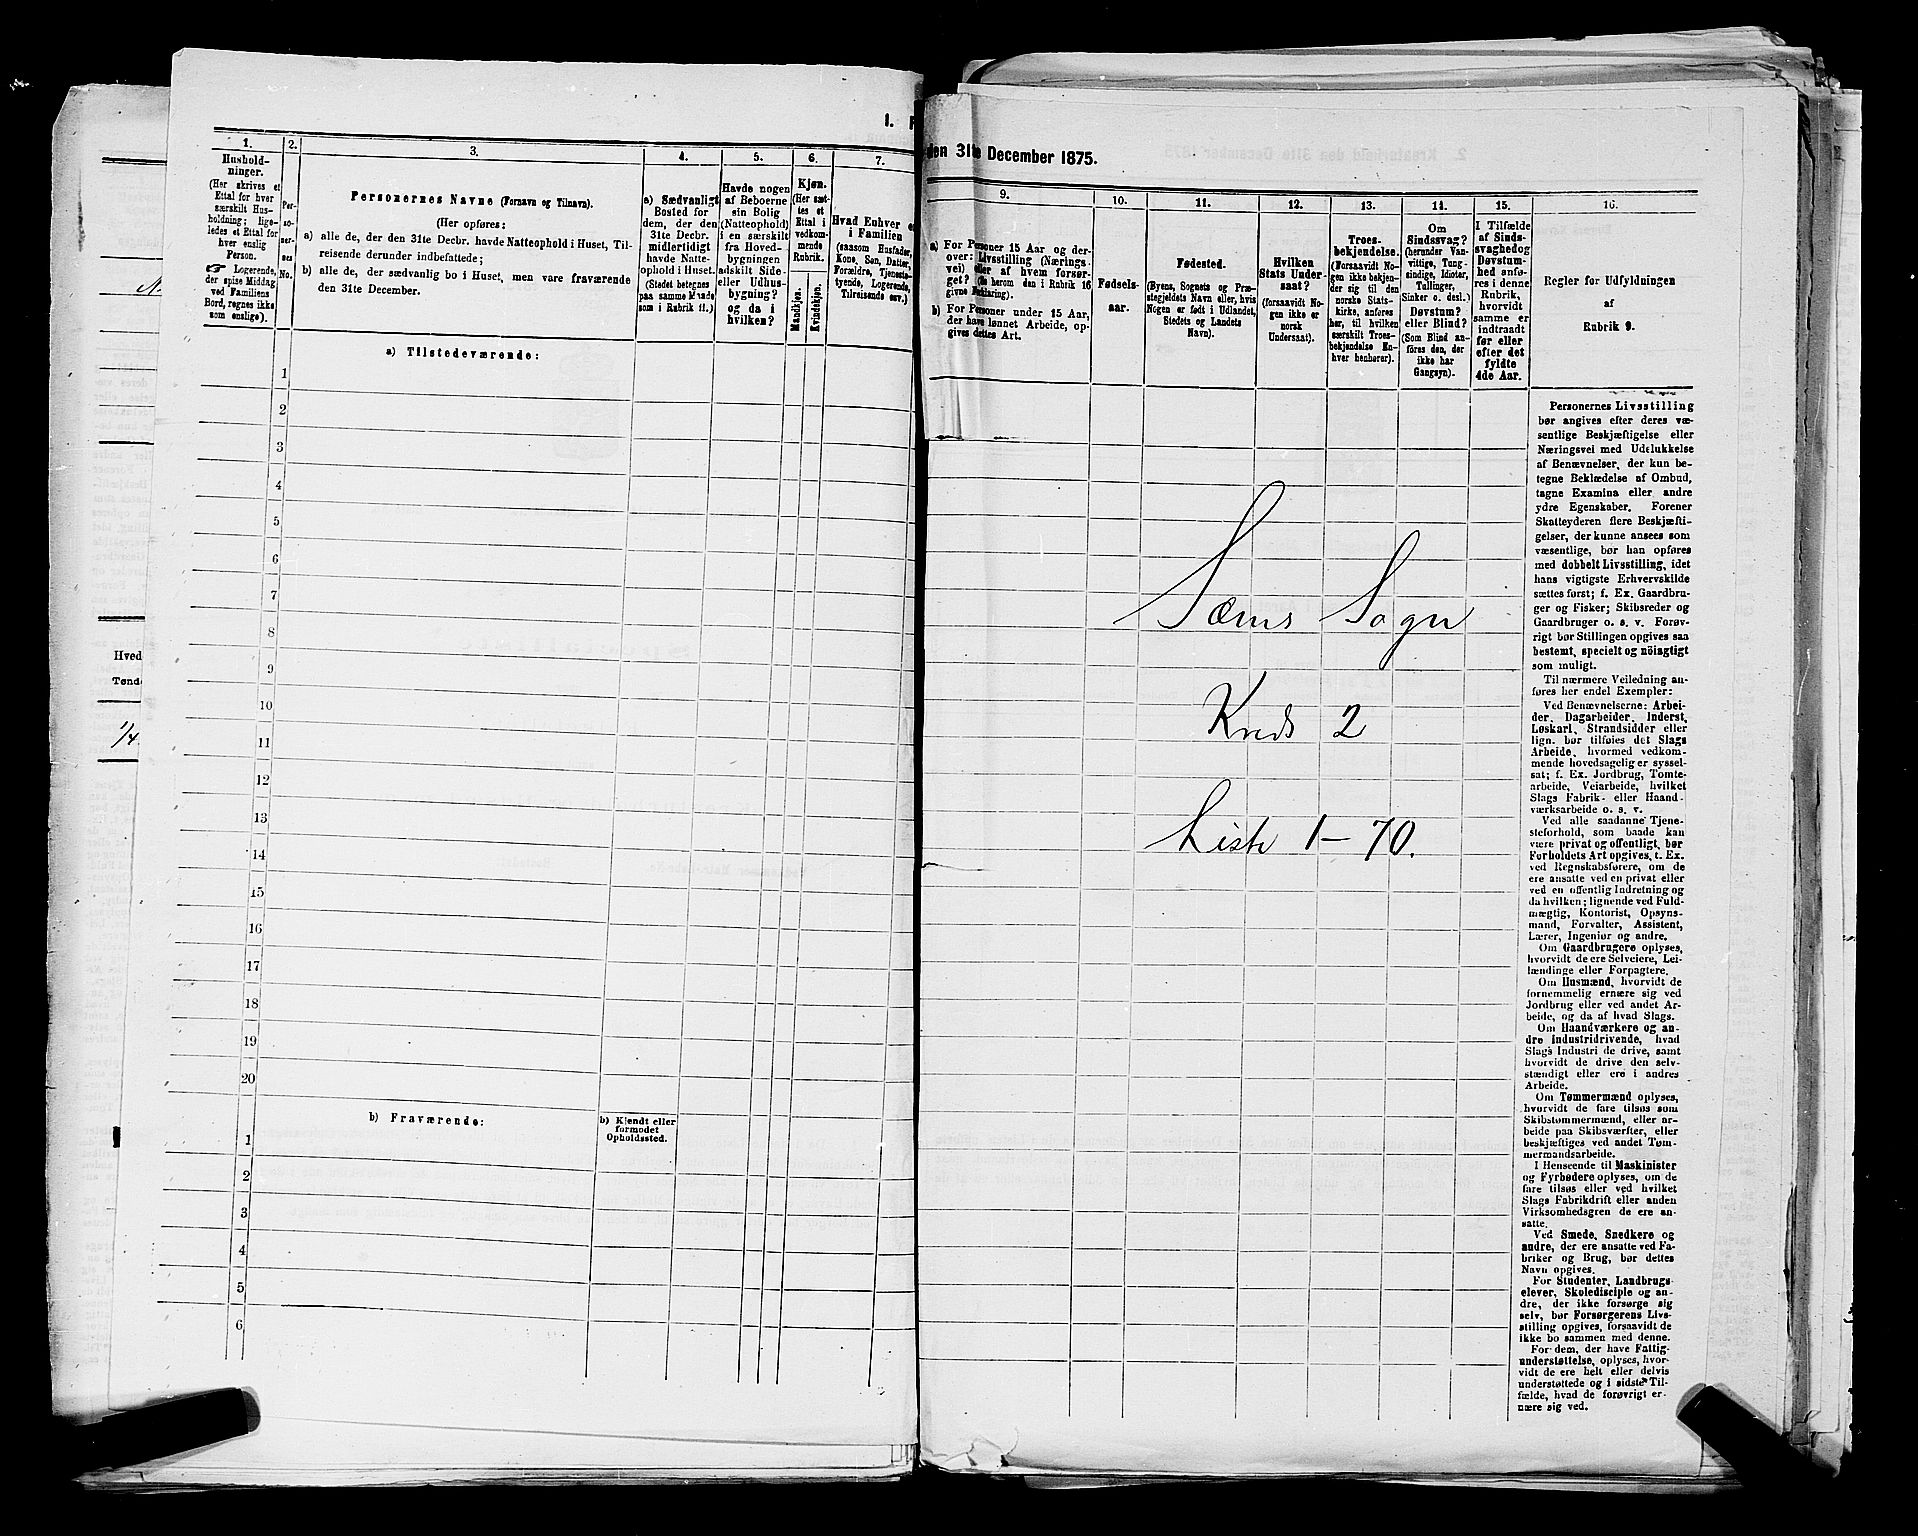 1. F
1.
2.
3.
4.
5.
6.
7.
Hushold-
ninger.
(Her skrives et
Ettal for hver
særskilt Hus-
holdning; lige-
ledes et Ettal for
hver enslig
Person.
☞ Logerende,
der spise Middag
ved Familiens
Bord, regnes ikke
som enslige).
Per-
so-
ner-
nes
No.
Personernes Navne (Fornavn og Tilnavn).
(Her opføres:
a) alle de, der den 31te Decbr. havde Natteophold i Huset, Til-
reisende derunder indbefattede;
b) alle de, der sædvanlig bo i Huset, men vare fraværende
den 31te December.
a) Sædvanligt
Bosted for
dem, der den
31te Decbr.
midlertidigt
havde Natte-
ophold i Huset.
(Stedet betegnes
paa samme Maade
som i Rubrik 11.)
Havde nogen
af Beboerne
sin Bolig
(Natteophold)
i en særskilt
fra Hoved-
bygningen
adskilt Side-
eller Udhus-
bygning?
og da i
hvilken?
Kjøn.
(Her sæt-
tes et
Ettal i
vedkom-
mende
Rubrik.
Mandkjøn.
Kvindekjøn.
Hvad Enhver e
i Familien
(saasom Husfader,
Kone, Søn, Datter,
Forældre, Tjeneste-
tyende, Logerende,
Tilreisende osv.)
a) Tilstedeværende:
1
2
3
4
5
6
7
8
9
10
11
12
13
14
15
16
17
18
19
20
b) Fraværende:
b) Kjendt eller
formodet
Opholdssted.
1
2
3
4
5
6
Hved
Tønde
1/4
den 31te December 1875.
9.
10.
11.
12.
13.
14.
15.
16.
a) For Personer 15 Aar og der-
over: Livsstilling (Nærings-
vei) eller af hvem forsør-
get? (Se herom den i Rubrik 16
givne Forklaring).
b) For Personer under 15 Aar,
der have lønnet Arbeide, op-
gives dettes Art.
Fødsels-
aar.
Fødested.
(Byens, Sognets og Præ-
stegjeldets Navn eller, hvis
Nogen er født i Udlandet,
Stedets og Landets
Navn).
Hvilken
Stats Under-
saat?
(forsaavidt No-
gen ikke er
norsk
Undersaat).
Troes-
bekjendelse.
(Forsaavidt No-
gen ikke bekjen-
der sig til den
norske Stats-
kirke, anføres
her, til hvilken
særskilt Troes-
bekjendelse En-
hver henhører).
Om
Sindssvag?
(herunder Van-
vittige, Tung-
sindige, Idioter,
Tullinger,
Sinker o. desl.)
Døvstum?
eller Blind?
(Som Blind an-
føres den, der
ikke har
Gangsyn).
I Tilfælde
af Sinds-
svaghed og
Døvstum-
hed anfø-
res i denne
Rubrik,
hvorvidt
samme er
indtraadt
før eller
efter det
fyldte
4de Aar.
Regler for Udfyldningen
af
Rubrik 9.
Sæms Sogn
Kreds 2
Liste 1-70.
Personernes Livsstilling
bør angives efter deres væ-
sentlige Beskjæftigelse eller
Næringsvei med Udelukkelse
af Benævnelser, der kun be-
tegne Beklædelse af Ombud,
tagne Examina eller andre
ydre Egenskaber. Forener
Skatteyderen flere Beskjæfti-
gelser, der kunne ansees som
væsentlige, bør han opføres
med dobbelt Livsstilling, idet
hans vigtigste Erhvervskilde
sættes først; f. Ex. Gaardbru-
ger og Fisker; Skibsreder og
Gaardbruger o. s. v. Forøv-
rigt bør Stillingen opgives saa
bestemt, specielt og nøiagtigt
som muligt.
Til nærmere Veiledning an-
føres her endel Exempler:
Ved Benævnelserne: Arbei-
der, Dagarbeider, Inderst,
Løskarl, Strandsidder eller
lign. bør tilføies det Slags
Arbeide, hvormed vedkom-
mende hovedsagelig er syssel-
sat; f. Ex. Jordbrug, Tomte-
arbeide, Veiarbeide, hvilket
Slags Fabrik- eller Haand-
værksarbeide o. s. v.
Ved alle saadanne Tjene-
steforhold, som baade kan
være privat og offentligt, bør
Forholdets Art opgives, t. Ex.
ved Regnskabsførere, om de
ere ansatte ved en privat eller
ved en offentlig Indretning og
da hvilken; lignende ved Fuld-
mægtig, Kontorist, Opsyns-
mand, Forvalter, Assistent,
Lærer, Ingeniør og andre.
Om Gaardbrugere oplyses,
hvorvidt de ere Selveiere, Lei-
lændinge eller Forpagtere.
Om Husmænd, hvorvidt de
fornemmelig ernære sig ved
Jordbrug eller ved andet Ar-
beide, og da af hvad Slags.
Om Haandværkere og an-
dre Industridrivende, hvad
Slags Industri de drive, samt
hvorvidt de drive den selv-
stændigt eller ere i andres
Arbeide.
Om Tømmermænd oplyses,
hvorvidt de fare tilsøs som
Skibstømmermænd, eller ar-
beide paa Skibsværfter, eller
beskjæftiges ved andet Tøm-
mermandsarbeide.
I Henseende til Maskinister
og Fyrbødere oplyses, om de
fare tilsøs eller ved hvilket
Slags Fabrikdrift eller anden
Virksomhedsgren de ere an-
satte.
Ved Smede, Snedkere og
andre, der ere ansatte ved Fa-
briker og Brug, bør dettes
Navn opgives.
For Studenter, Landbrugs-
elever, Skoledisciple og an-
dre, der ikke forsørge sig
selv, bør Forsørgerens Livs-
stilling opgives, forsaavidt de
ikke bo sammen med denne.
For dem, der have Fattig-
understøttelse, oplyses, hvor-
vidt de ere helt eller delvis
understøttede og i sidste Til-
fælde, hvad de forøvrigt er-
nære sig ved.